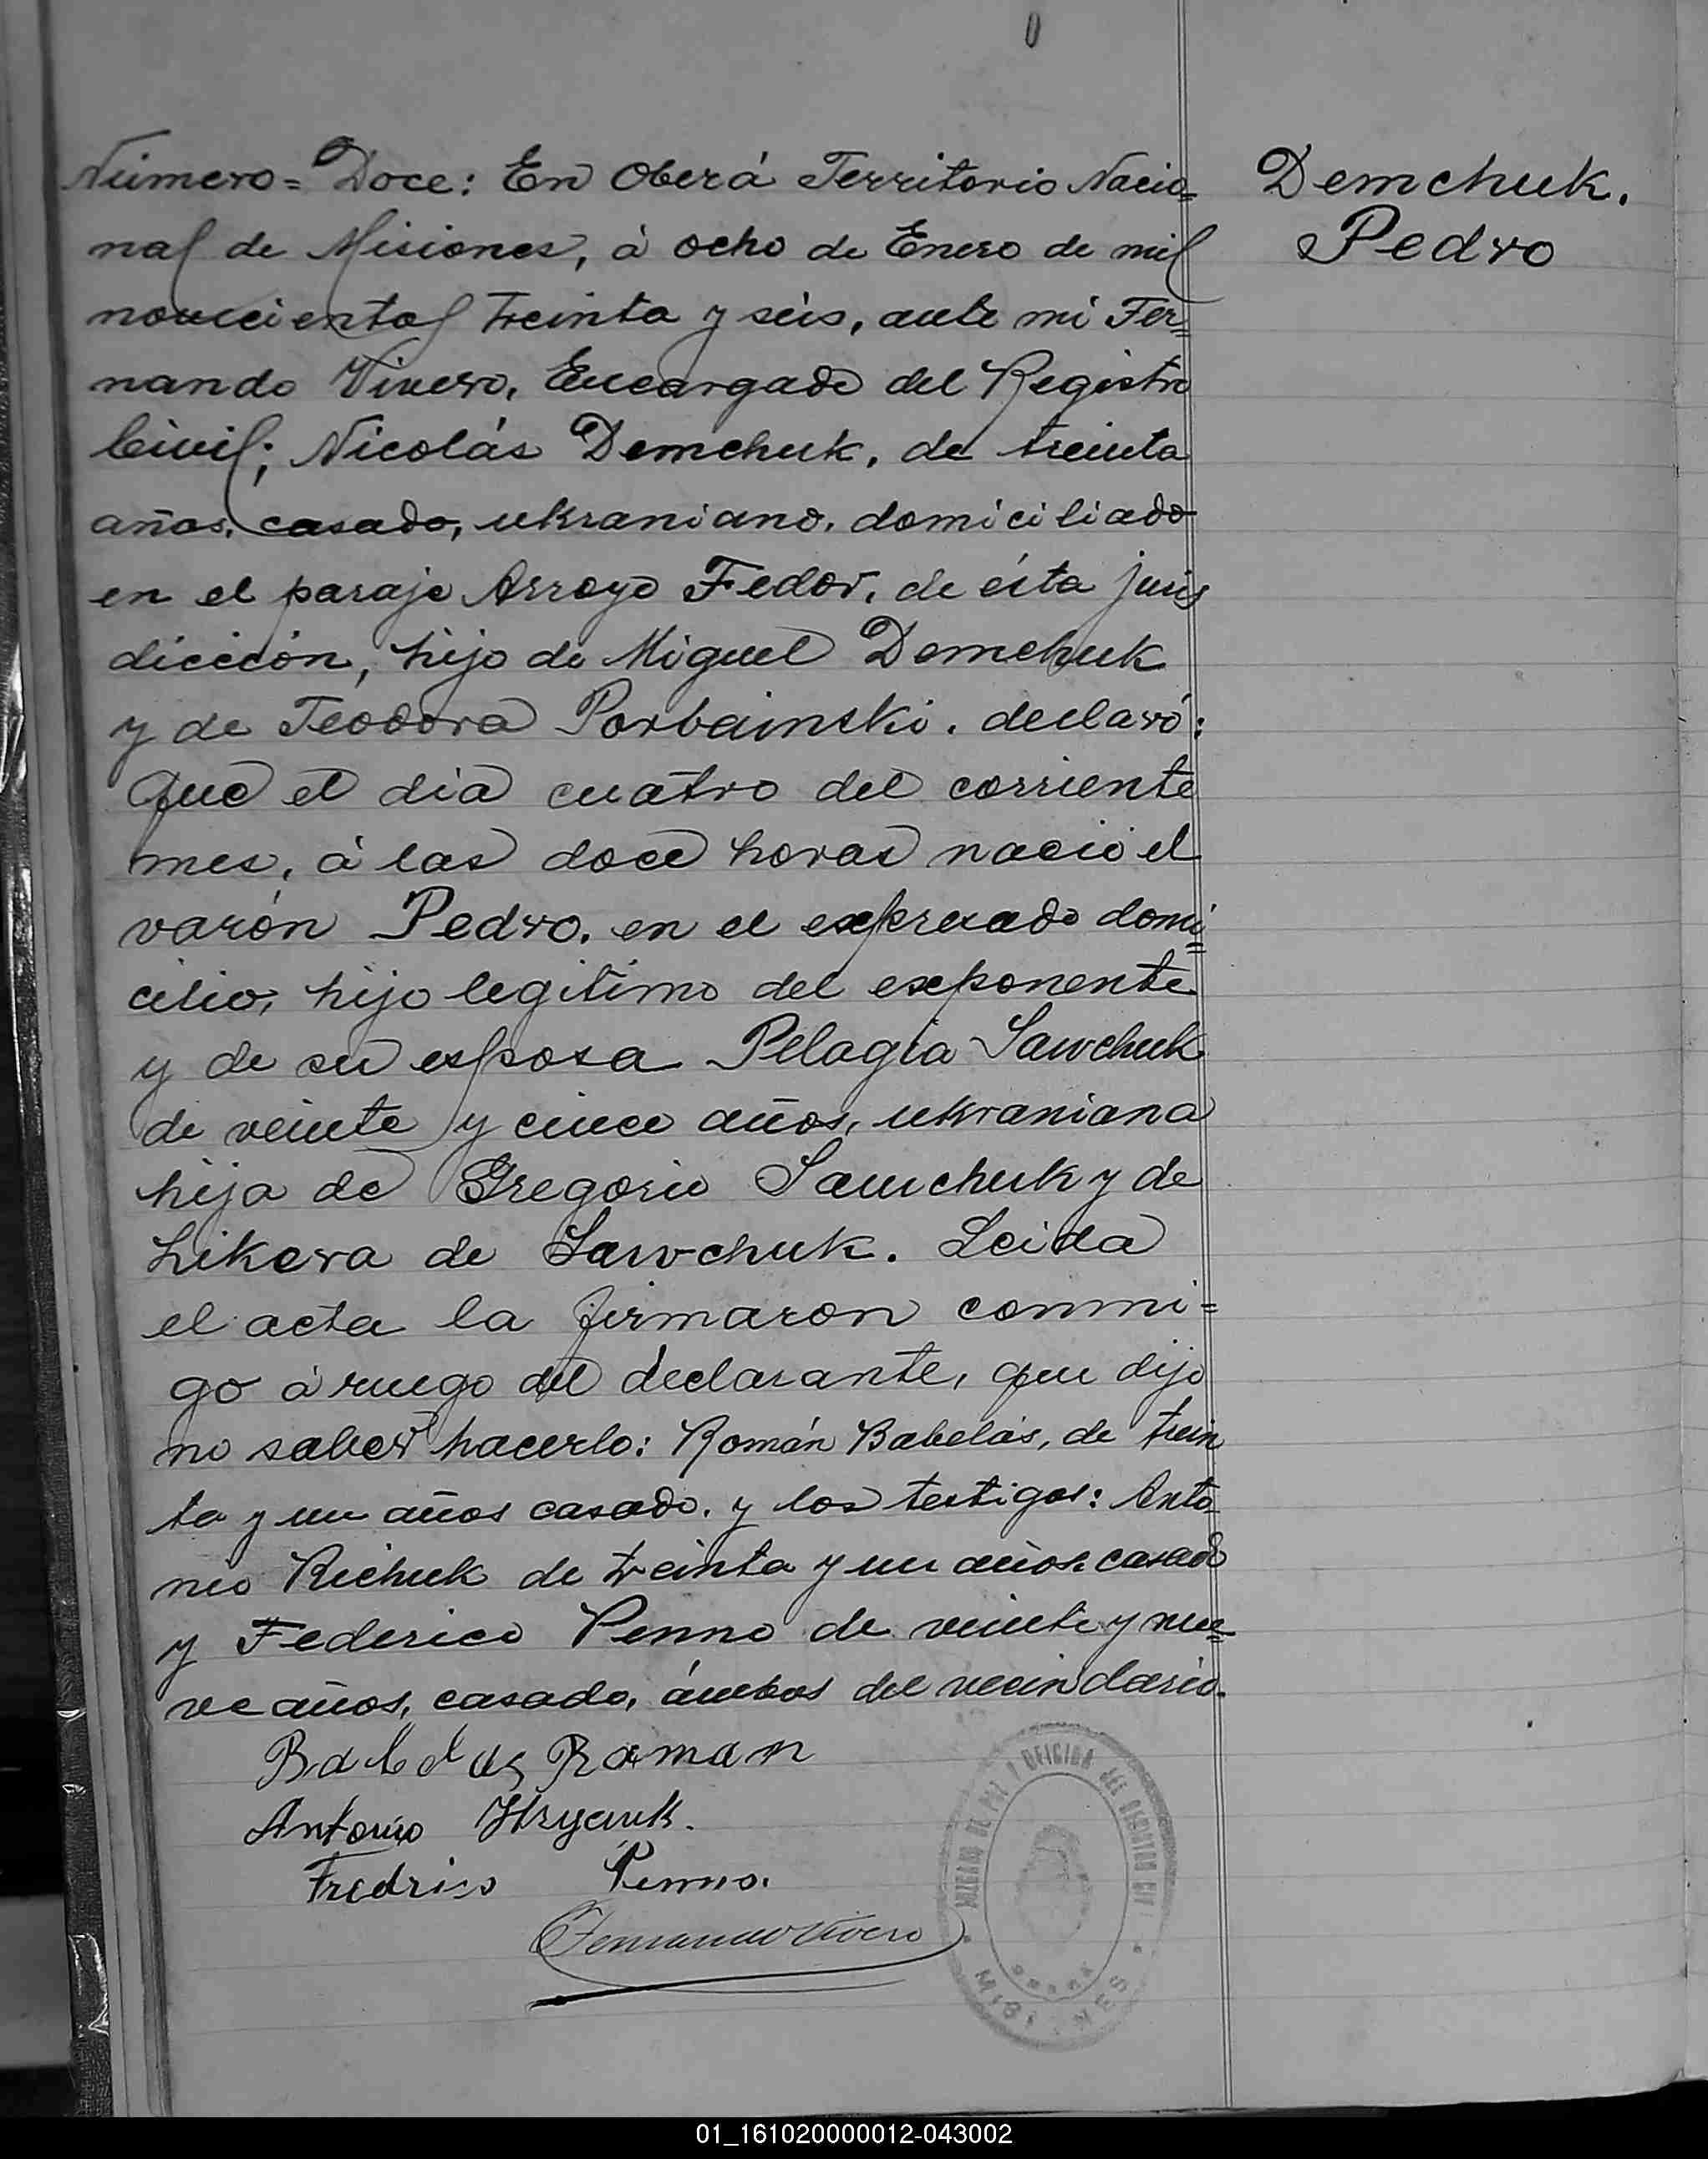 Número= Doce: En Oberá Territorio Nacio=
nal de Misiones, à ocho de Enero de mil
novecientos treinta y seis, ante mi Fer=
nando Vivero, Encargado del Registro
Civil; Nicolás Demchuk, de treinta
años, casado, ukraniano, domiciliado
en el paraje Arroyo Fedor, de ésta juris
dicción, hijo de Miguel Demchuk
y de Teodora Porbainski, declaró:
Que el dia cuatro del corriente
mes, à las doce horas nació el
varón Pedro, en el expresado domi=
cilio, hijo legitimo del exponente
y de su esposa Pelagia Sawchuk
de veinte y cinco años, ukraniana
hija de Gregorio Sawchuk y de
Likera de Sawchuk. Leida
el acta la firmaron conmi=
go à ruego del declarante, que dijo
no saber hacerlo: Román Babelás, de trein
ta y un años casado, y los testigos: Anto=
nio Richuk de treinta y un años casado
y Federico Penno de veinte y nue=
ve años, casado, ámbos del vecindario.
Babelas Roman
Antonio Hrycuk.
Fredrico Penno.
Fernando Vivero
Demchuk.
Pedro
JUZGADO DE PAZ Y OFICINA DEL REGISTRO CIVIL
MISIONES
01_161020000012-043002